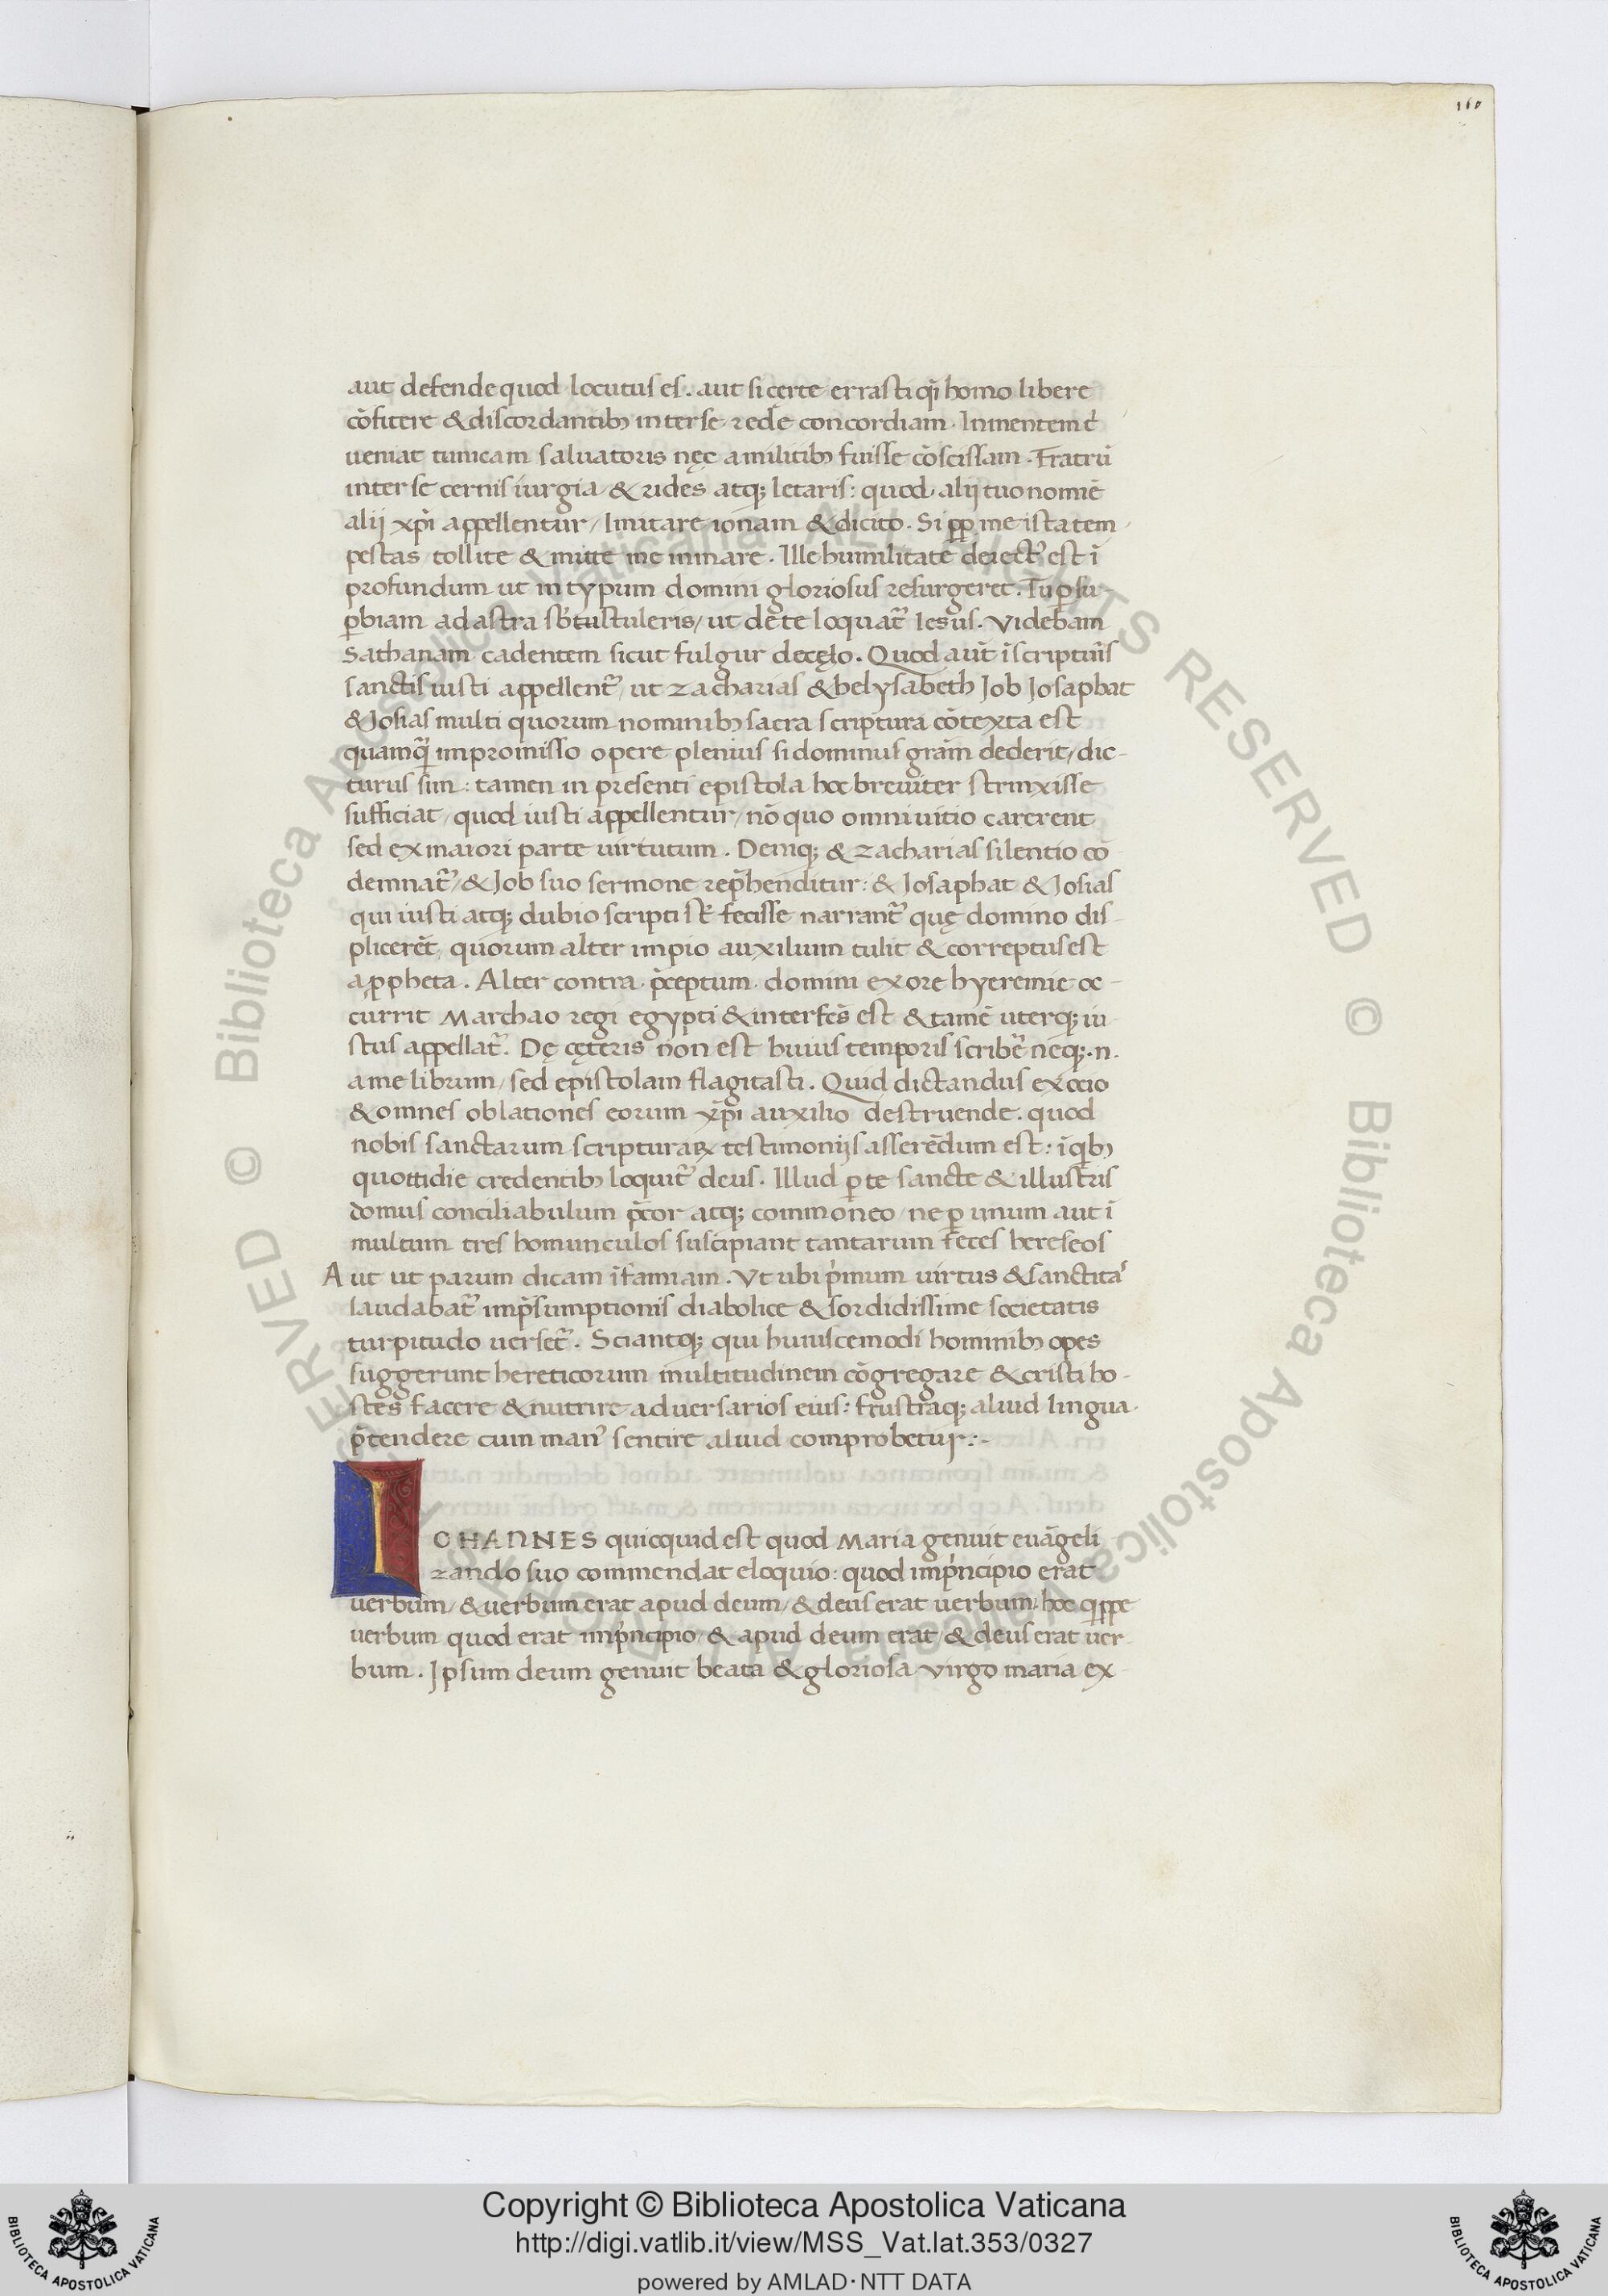 160
aut defende quod locutus es. aut si certe errasti q̃ homo libere
cõfitere & discordantib; inter se redde concordiam. In mentem t̃
ueniat tunicam saluatoris nęc a militib; fuisse cõscissam. Fratrũ
inter se cernis iurgia / & rides atq; letaris: quod alij tuo nomĩe
alij xp̃i appellentur / Imitare ionam & dicito. Si pp̃ me ista tem
pestas / tollite & mitte me in mare. Ille humilitatẽ deiect̃ est ĩ
profundum ut in typum domini gloriosus resurgeret. Tu p su-
p̱biam ad astra sustuleris / ut de te loquat̃ Iesus. Videbam
Sathanam cadentem sicut fulgur de cęlo. Quod aut̃ ĩ scripturis
sanctis iusti appellent̃ / ut zacharias & helysabeth Job Josaphat
& Josias multi quorum nominib; sacra scriptura cõtexta est
quamq̃ in promisso opere plenius si dominus gr̃am dederit / dic-
turus sim: tamen in presenti epistola hoc breuiter strinxisse
sufficiat / quod iusti appellentur / nõ quo omni uitio carerent
sed ex maiori parte uirtutum. Deniq; & zacharias silentio cõ
demnat̃ / & Job suo sermone rep̃henditur: & Josaphat & Josias
qui iusti atq; dubio scripti st̃ fecisse narrant̃ quę domino dis
plicerẽt / quorum alter impio auxilium tulit & correptus est
a ꝓpheta. Alter contra p̃ceptum domini ex ore hyeremie oc-
currit Marchao regi egypti & interfc̃s est & tamẽ uterq; iu-
stus appellat̃. Dę cęteris non est huius temporis scribẽ neq; .n.
a me librum / sed epistolam flagitasti. Quid dictandus ex ocio
& omnes oblationes eorum xp̃i auxilio destruende. quod
nobis sanctarum scripturaꝝ testimonijs asserẽdum est: ĩ qib;
quottidie credentib; loquit̃ deus. Illud p̱ te sancte & illustris
domus conciliabulum p̃cor atq; commoneo / ne p̱ unum aut ĩ
multum tres homunculos suscipiant tantarum feces hereseos
Aut ut parum dicam ĩfamiam. Vt ubi p̃mum uirtus & sanctitas
laudabat̃ imp̃sumptionis diabolice & sordidissime societatis
turpitudo uerset̃. Sciantq; qui huiuscemodi hominib; opes
suggerunt hereticorum multitudinem cõgregare & cristi ho-
stes facere & nutrire aduersarios eius: frustraq; aliud lingua
p̃tendere cum man̾ sentire aliud comprobetur:-
IOHANNES quicquid est quod Maria genuit euãgeli
zando suo commendat eloquio: quod in p̃ncipio erat
uerbum / & uerbum erat apud deum / & deus erat uerbum. hoc qippe
uerbum quod erat in p̃ncipio / & apud deum erat / & deus erat uer
bum. Ipsum deum genuit beata & gloriosa virgo maria ex
Copyright © Biblioteca Apostolica Vaticana
http://digi.vatlib.it/view/MSS_Vat.lat.353/0327
powered by AMLAD·NTT DATA
BIBLIOTECA APOSTOLICA VATICANA
BIBLIOTECA APOSTOLICA VATICANA